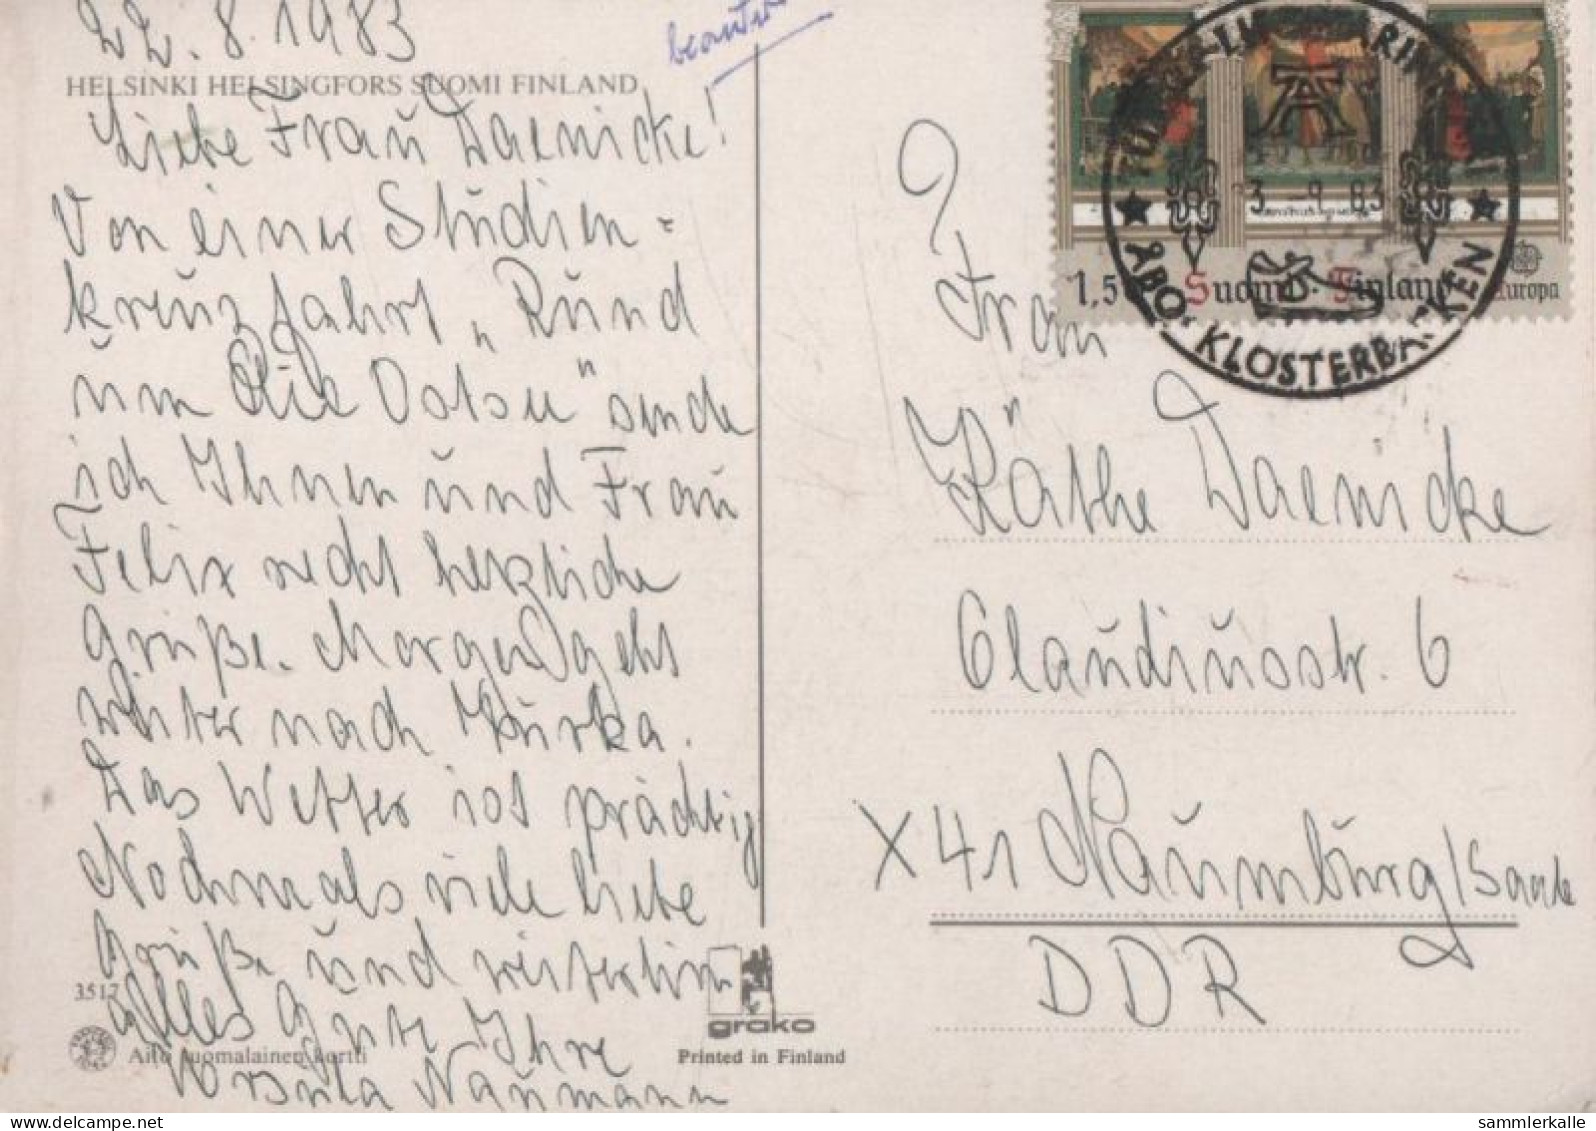 22. 8. 1983
HELSINKI HELSINGFORS SUOMI FINLAND
Liebe Frau Daenicke!
Von einer Studien=
kreuzfahrt „Rund
um die Ostsee" sende
ich Ihnen und Frau
Felix recht herzliche
Grüße. Morgen geht's
weiter nach Turku.
Das Wetter ist prächtig
Nochmals viele liebe
Grüße und weiterhin
alles Gute Ihre
Ursula Naumann
3517
Aito suomalainen kortti
grako
Printed in Finland
1,50 Suomi Finland Europa
ÅBO, KLOSTERBACKEN
83
Frau
Käthe Daenicke
Claudiusstr. 6
X 41 Naumburg/Saale
DDR
sammlerkalle